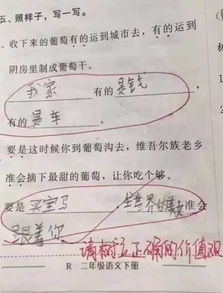 五、照样子，写一写。
收下来的葡萄有的运到城市去，有的运到
阴房里制成葡萄干。
我家 有的是钱
有的 是车 。
要是这时候你到葡萄沟去，维吾尔族老乡
准会摘下最甜的葡萄，让你吃个够。
要是 买宝马 ，全世界女 准会
跟着你
请树立正确的价值观
R 二年级语文下册